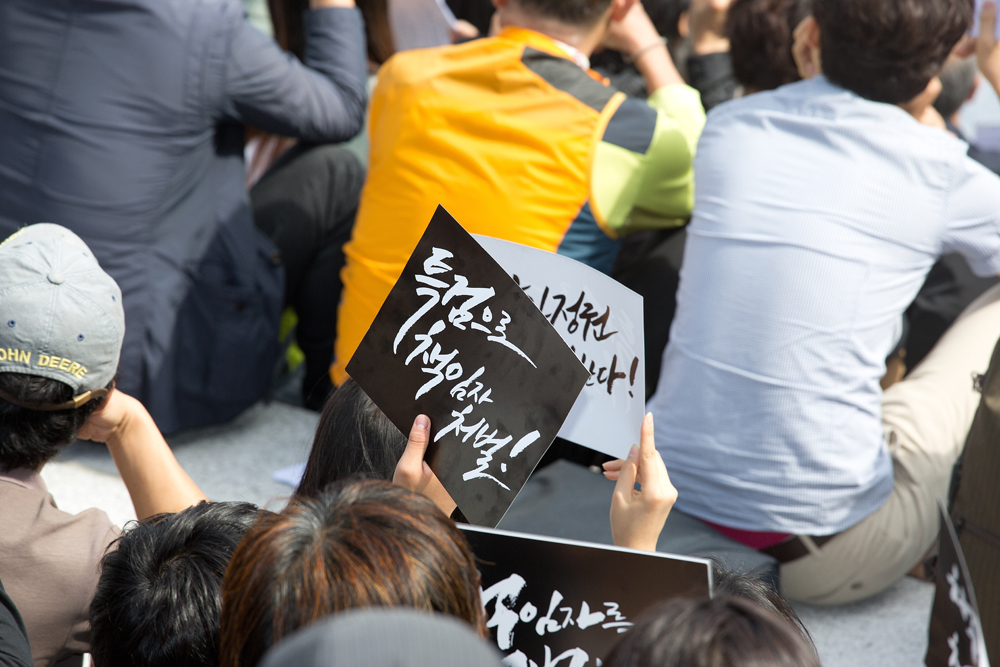 JOHN DEERE
특검으로
책임자
처벌!
정권
한다!
책임자를